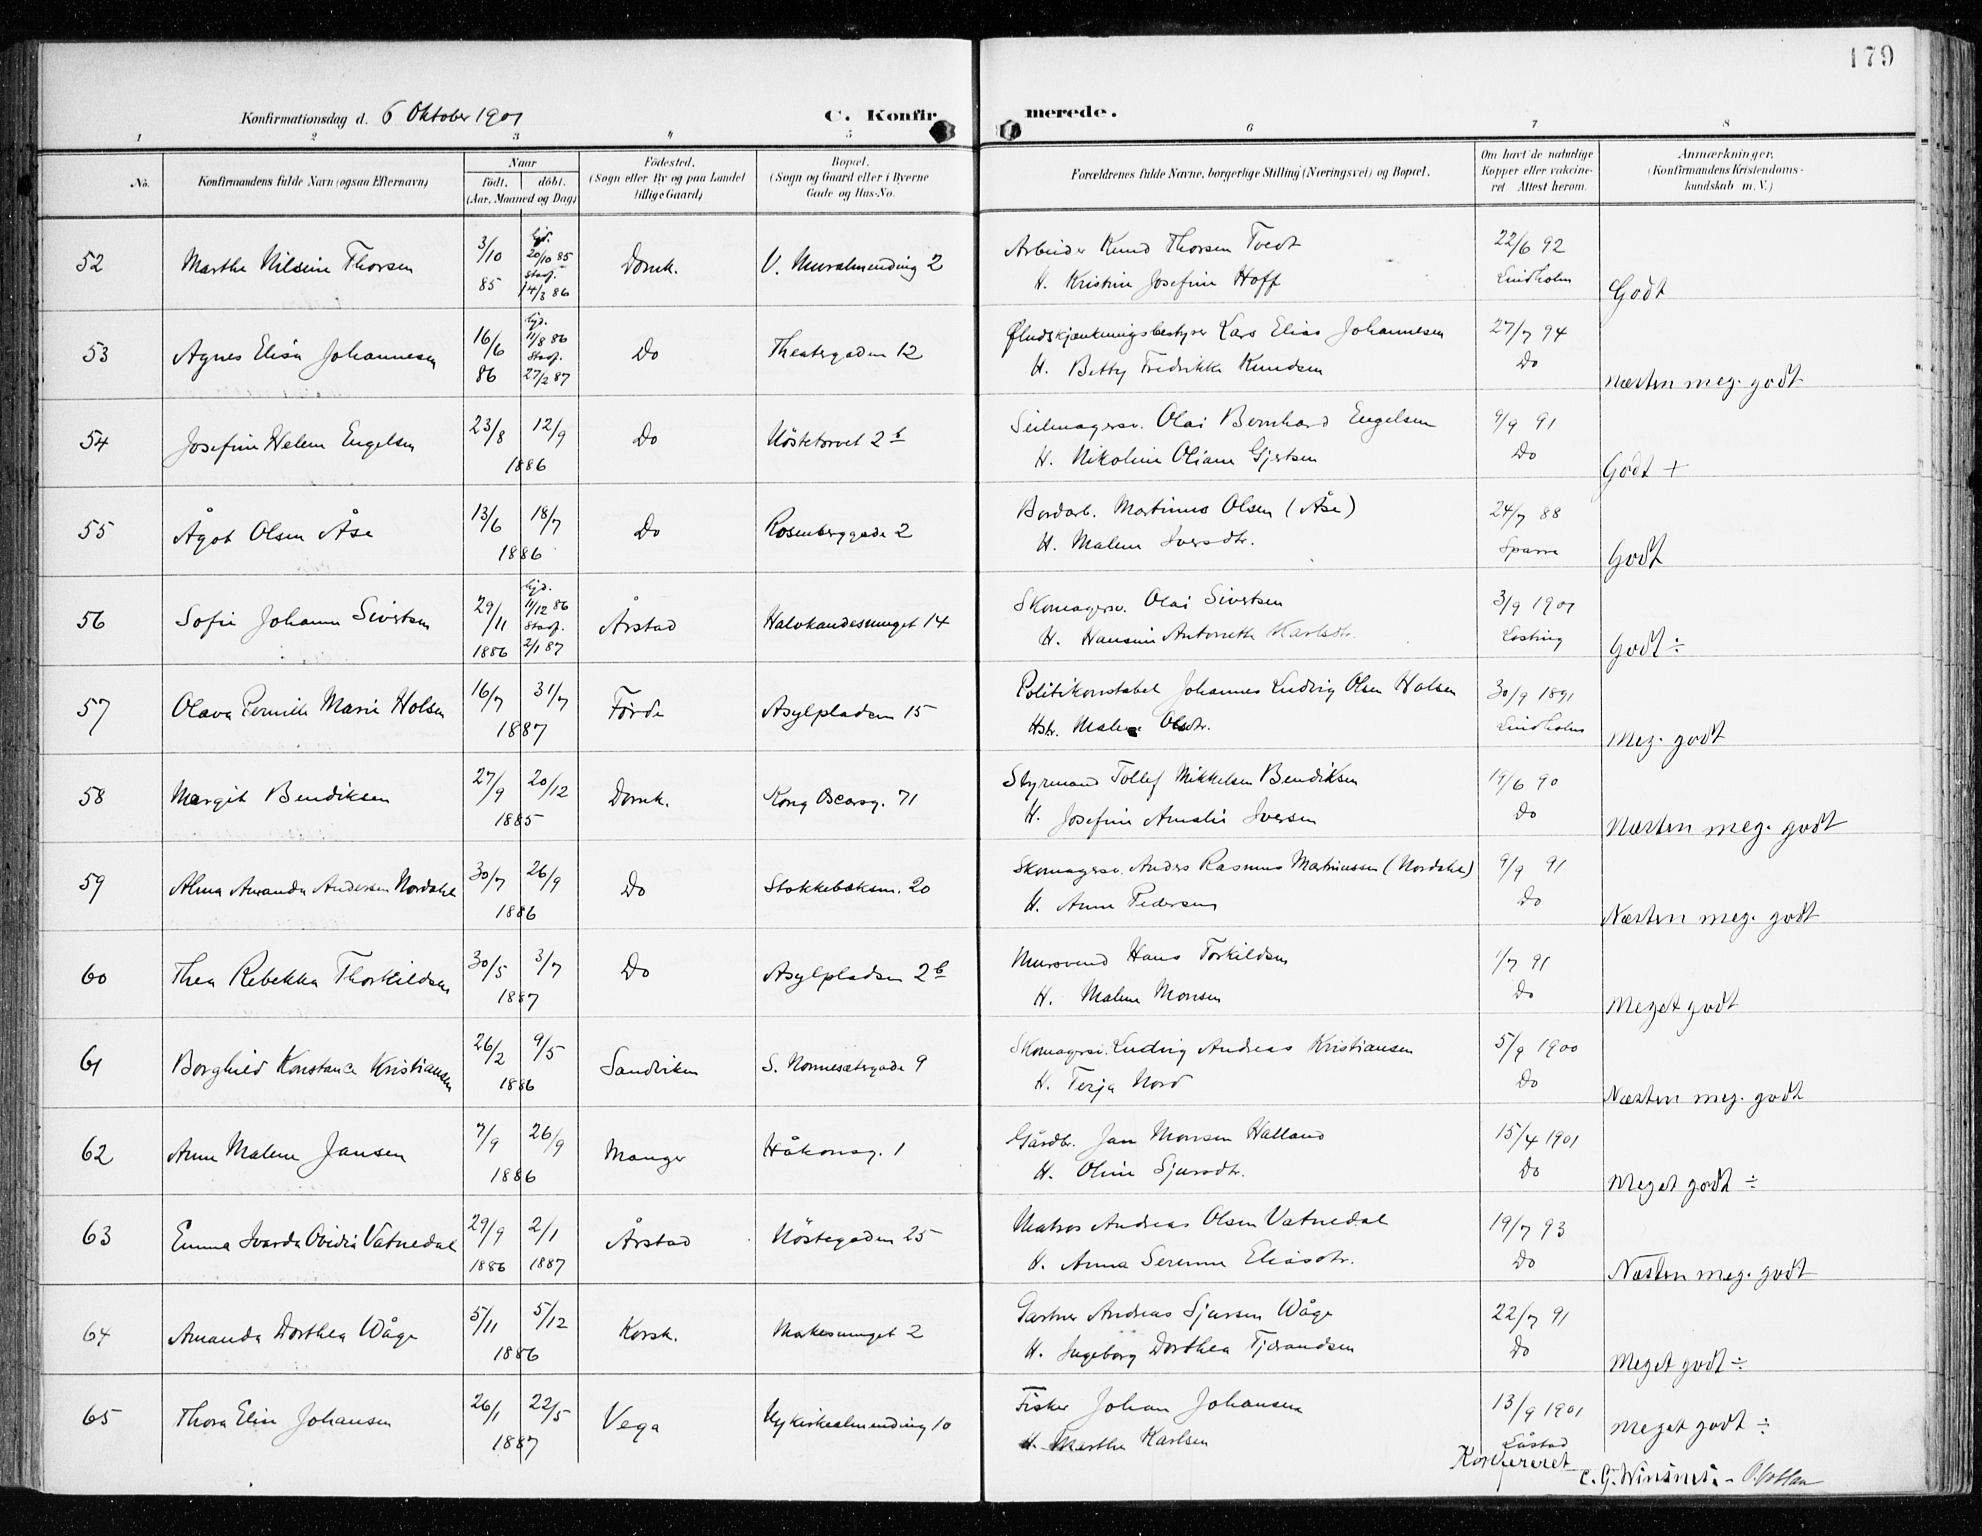 179
Konfirmationsdag d. 6 Oktober 1901
C. Konfirmerede.
1 2 3 4 5 6 7 8
No.
Konfirmandens fulde Navn (ogsaa Efternavn)
Naar
født. døbt.
(Aar, Maaned og Dag)
Fødested.
(Sogn eller By og paa Landet
tillige Gaard)
Bopæl.
(Sogn og Gaard eller i Byerne
Gade og Hus-No.
Forældrenes fulde Navne, borgerlige Stilling (Næringsvei) og Bopæl.
Om havt de naturlige
Kopper eller vakcine-
ret Attest herom.
Anmærkninger.
(Konfirmandens Kristendoms-
kundskab m. V.)
52 Marthe Nilsine Thorsen 3/10 85 hjd. 20/10 85 stadf. 14/3 86 Domk. V. Muralmending 2
Arbeider Knud Thorsen Tvedt 22/6 92
H. Kristine Josefine Hoff Lindholm Godt
53 Agnes Elisa Johannesen 16/6 86 hjd. 11/8 86 Stadf. 27/2 87 Do Theatergaden 12
Øludskjænkningsbestyrer Lars Elias Johannesen 27/7 94
H. Betty Fredrikke Knudsen Do Næsten meg. godt
54 Josefine Helene Engelsen 23/8 12/9 1886 Do Nöstetorvet 2 b
Seilmagersv. Olai Bernhard Engelsen 9/9 91
H. Nikoline Oliane Gjertsen Do Godt +
55 Ågot Olsen Åse 13/6 18/7 1886 Do Rosenberggade 2
Bordarb. Martinus Olsen (Åse) 24/7 88
H. Malene Iversdtr. Sparre Godt
56 Sofie Johanne Sivertsen 29/11 1886 hjd. 11/12 86 Stadf. 2/1 87 Årstad Halvkandesmuget 14
Skomagersv. Olai Sivertsen 3/9 1901
H. Hansine Antonette Karlsdtr. Godt ÷
57 Olava Pernille Marie Holsen 16/7 31/7 1887 Förde Asylpladsen 15
Politikonstabel Johannes Ludvig Olsen Holsen 30/9 1891
Hstr. Malene Olsdtr. Lindholm Meg. godt
58 Margit Bendiksen 27/9 20/12 1885 Domk. Kong Oscarsg. 71
Styrmand Tollef Mikkelsen Bendiksen 19/6 90
H. Josefine Amalie Iversen Do Næsten meg. godt
59 Alma Amanda Andersen Nordahl 30/7 26/9 1886 Do Stokkebæksm. 20
Skomagersv. Anders Rasmus Martinussen (Nordahl) 9/9 91
H. Anne Pedersen Do Næsten meg. godt
60 Thea Rebekka Thorkildsen 30/5 3/7 1887 Do Asylpladsen 2 b
Mursvend Hans Torkildsen 1/7 91
H. Malene Monsen Do Meget godt
61 Borghild Konstance Kristiansen 26/2 9/5 1886 Sandviken S. Nonnesætergade 9
Skomagersv. Ludvig Andreas Kristiansen 5/9 1900
H. Terja Nord Do Næsten meg. godt
62 Anne Malene Jansen 7/9 26/9 1886 Manger Håkonsg. 1
Gårdbr. Jan Monsen Halland 15/4 1901
H. Oline Sjursdtr. Do Meget godt ÷
63 Emma Ivarda Ovidia Vatnedal 29/9 1886 2/1 1887 Årstad Nöstegaden 25
Matros Andreas Olsen Vatnedal 19/7 93
H. Anna Serenne Eliasdtr. Do Næsten meg. godt
64 Amanda Dorthea Wåge 5/11 5/12 1886 Korsk. Makesmuget 2
Gartner Andreas Sjursen Wåge 22/7 91
H. Ingeborg Dorthea Tjerandsen Do Meget godt ÷
65 Thora Elise Johansen 26/1 22/5 1887 Vega Nykirkealmending 10
Fisker Johan Johansen 13/9 1901
H. Marthe Karlsen Låstad Meget godt ÷
Konfereret
C. G. Winsnes. -